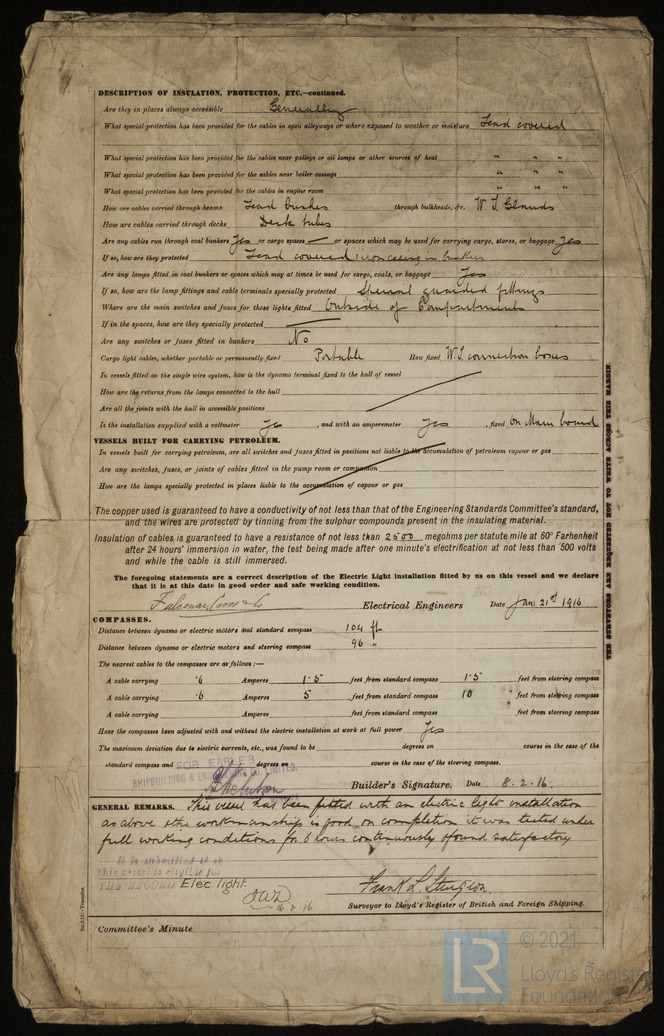 DESCRIPTION OF INSULATION, PROTECTION, ETC.—continued.
Are they in places always accessible Generally
What special protection has been provided for the cables in open alleyways or where exposed to weather or moisture Lead covered
What special protection has been provided for the cables near galleys or oil lamps or other sources of heat " " "
What special protection has been provided for the cables near boiler casings " " "
What special protection has been provided for the cables in engine room " " "
How are cables carried through beams Lead bushes through bulkheads, &c. W. T. Glands
How are cables carried through decks Deck tubes
Are any cables run through coal bunkers Yes or cargo spaces — or spaces which may be used for carrying cargo, stores, or baggage Yes
If so, how are they protected Lead covered iron casing in bunkers
Are any lamps fitted in coal bunkers or spaces which may at times be used for cargo, coals, or baggage Yes
If so, how are the lamp fittings and cable terminals specially protected Special guarded fittings
Where are the main switches and fuses for these lights fitted Outside of Compartments
If in the spaces, how are they specially protected
Are any switches or fuses fitted in bunkers No
Cargo light cables, whether portable or permanently fixed Portable How fixed W.T. connection boxes
In vessels fitted on the single wire system, how is the dynamo terminal fixed to the hull of vessel
How are the returns from the lamps connected to the hull
Are all the joints with the hull in accessible positions
Is the installation supplied with a voltmeter Yes , and with an amperemeter Yes , fixed On Main board
VESSELS BUILT FOR CARRYING PETROLEUM.
In vessels built for carrying petroleum, are all switches and fuses fitted in positions not liable to the accumulation of petroleum vapour or gas
Are any switches, fuses, or joints of cables fitted in the pump room or companion
How are the lamps specially protected in places liable to the accumulation of vapour or gas
The copper used is guaranteed to have a conductivity of not less than that of the Engineering Standards Committee's standard,
and the wires are protected by tinning from the sulphur compounds present in the insulating material.
Insulation of cables is guaranteed to have a resistance of not less than 2500 megohms per statute mile at 60° Farhenheit
after 24 hours' immersion in water, the test being made after one minute's electrification at not less than 500 volts
and while the cable is still immersed.
The foregoing statements are a correct description of the Electric Light installation fitted by us on this vessel and we declare
that it is at this date in good order and safe working condition.
Falconar Cross & Co Electrical Engineers Date Jan 21st 1916
COMPASSES.
Distance between dynamo or electric motors and standard compass 104 ft
Distance between dynamo or electric motors and steering compass 96 "
The nearest cables to the compasses are as follows:—
A cable carrying ·6 Amperes 1·5 feet from standard compass 1·5 feet from steering compass
A cable carrying ·6 Amperes 5 feet from standard compass 10 feet from steering compass
A cable carrying Amperes feet from standard compass feet from steering compass
Have the compasses been adjusted with and without the electric installation at work at full power Yes
The maximum deviation due to electric currents, etc., was found to be degrees on course in the case of the
standard compass and degrees on course in the case of the steering compass.
FOR EARLES
SHIPBUILDING & ENGINEERING CO. LIMITED.
Builder's Signature. Date 8.2.16.
GENERAL REMARKS. This vessel has been fitted with an electric light installation
as above the workmanship is good, on completion it was tested under
full working conditions for 6 hours continuously & found satisfactory
It is submitted that
this vessel is eligible for
THE RECORD Elec. light.
16.2.16
Frank L. Sturgeon.
Surveyor to Lloyd's Register of British and Foreign Shipping.
Committee's Minute
THE SURVEYORS ARE REQUESTED NOT TO WRITE ACROSS THIS MARGIN.
LR
© 2021
Lloyd's Register
Foundation